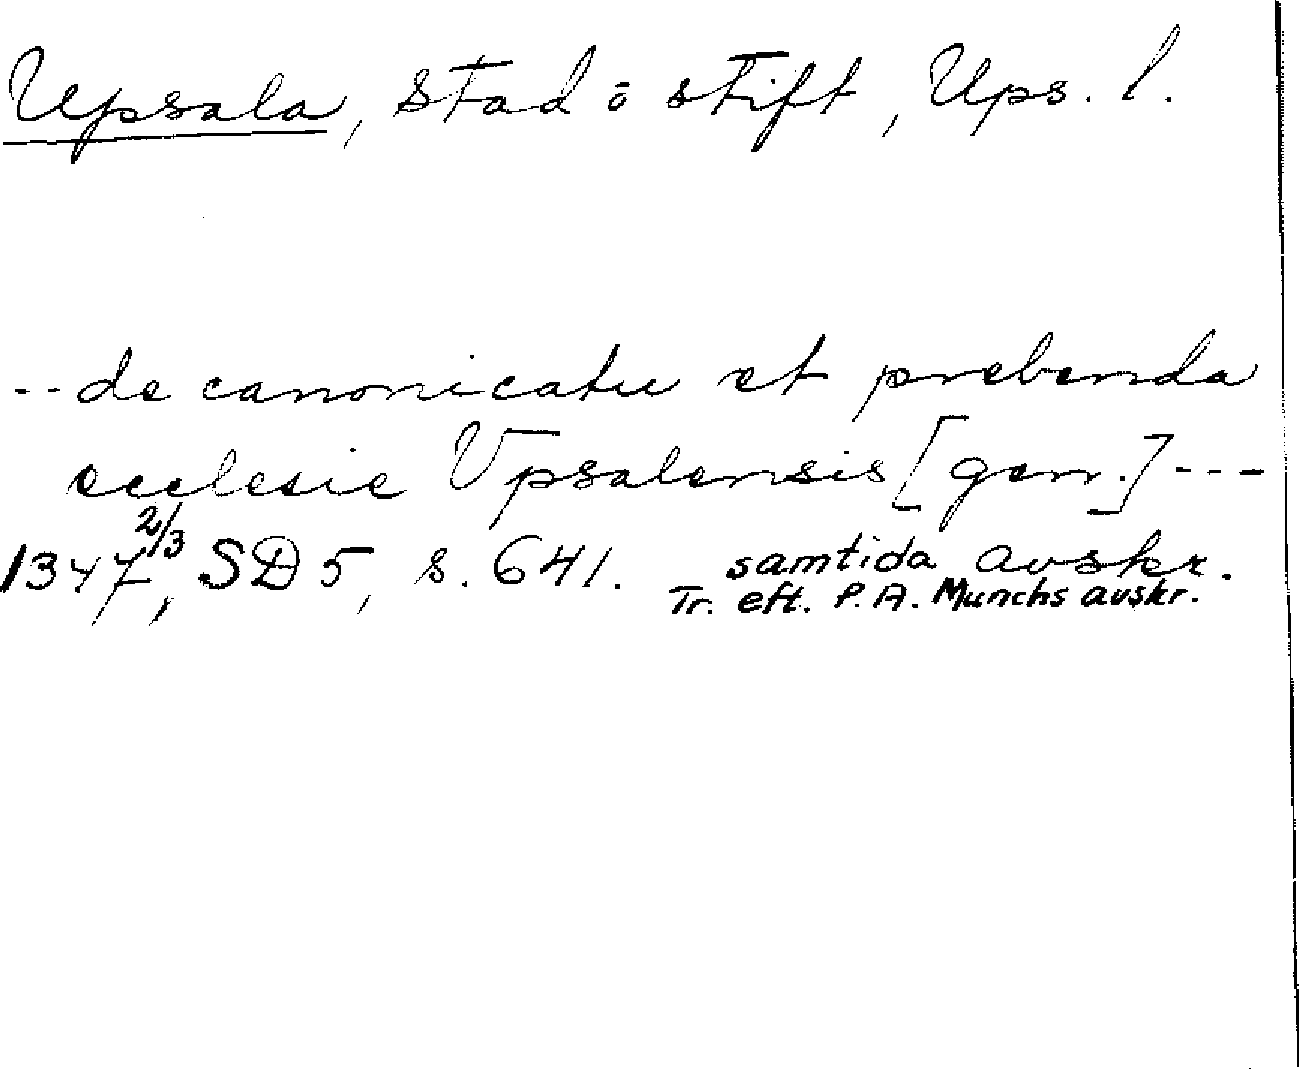 Upsala, stad o stift, Ups. l.
-- de canonicatu et prebenda
ecclesie Vpsalensis [gen.] ---
1347 2/3, SD 5, s. 641. samtida avskr.
Tr. eft. P. A. Munchs avskr.